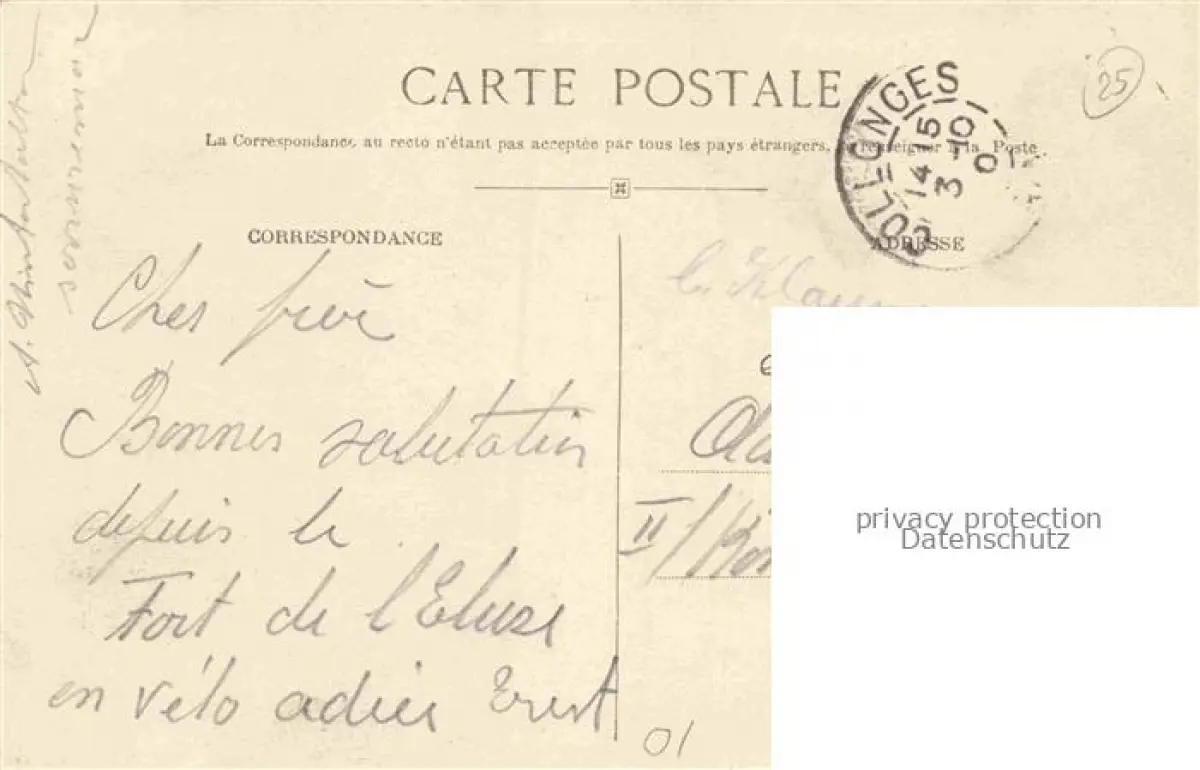 CARTE POSTALE
La Correspondance au recto n'étant pas acceptée par tous les pays étrangers, se renseigner à la Poste
COLLONGES
14 15
3 -10
0
25
CORRESPONDANCE
ADRESSE
Cher frère
Bonnes salutation
depuis le
Fort de l'Ecluse
en vélo adieu Ernst
II/
01
privacy protection
Datenschutz